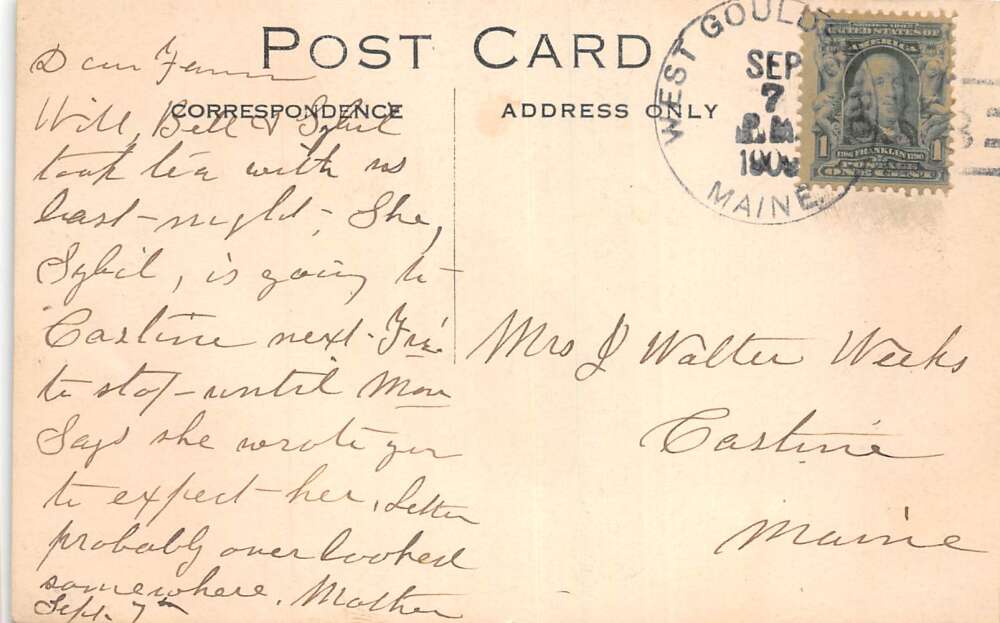 POST CARD
CORRESPONDENCE
ADDRESS ONLY
WEST GOULDS
SEP
7
1909
MAINE
UNITED STATES OF
AMERICA
1 1706 FRANKLIN 1790 1
POSTAGE
ONE CENT
Dear
Will, Bell & Sybil
took tea with us
last-night, She,
Sybil, is going to
Castine next Fri.
to stop until Mon
Says she wrote you
to expect her, Letter
probably overlooked
somewhere. Mother
Sept. 7th
Mrs J Walter Weeks
Castine
Maine